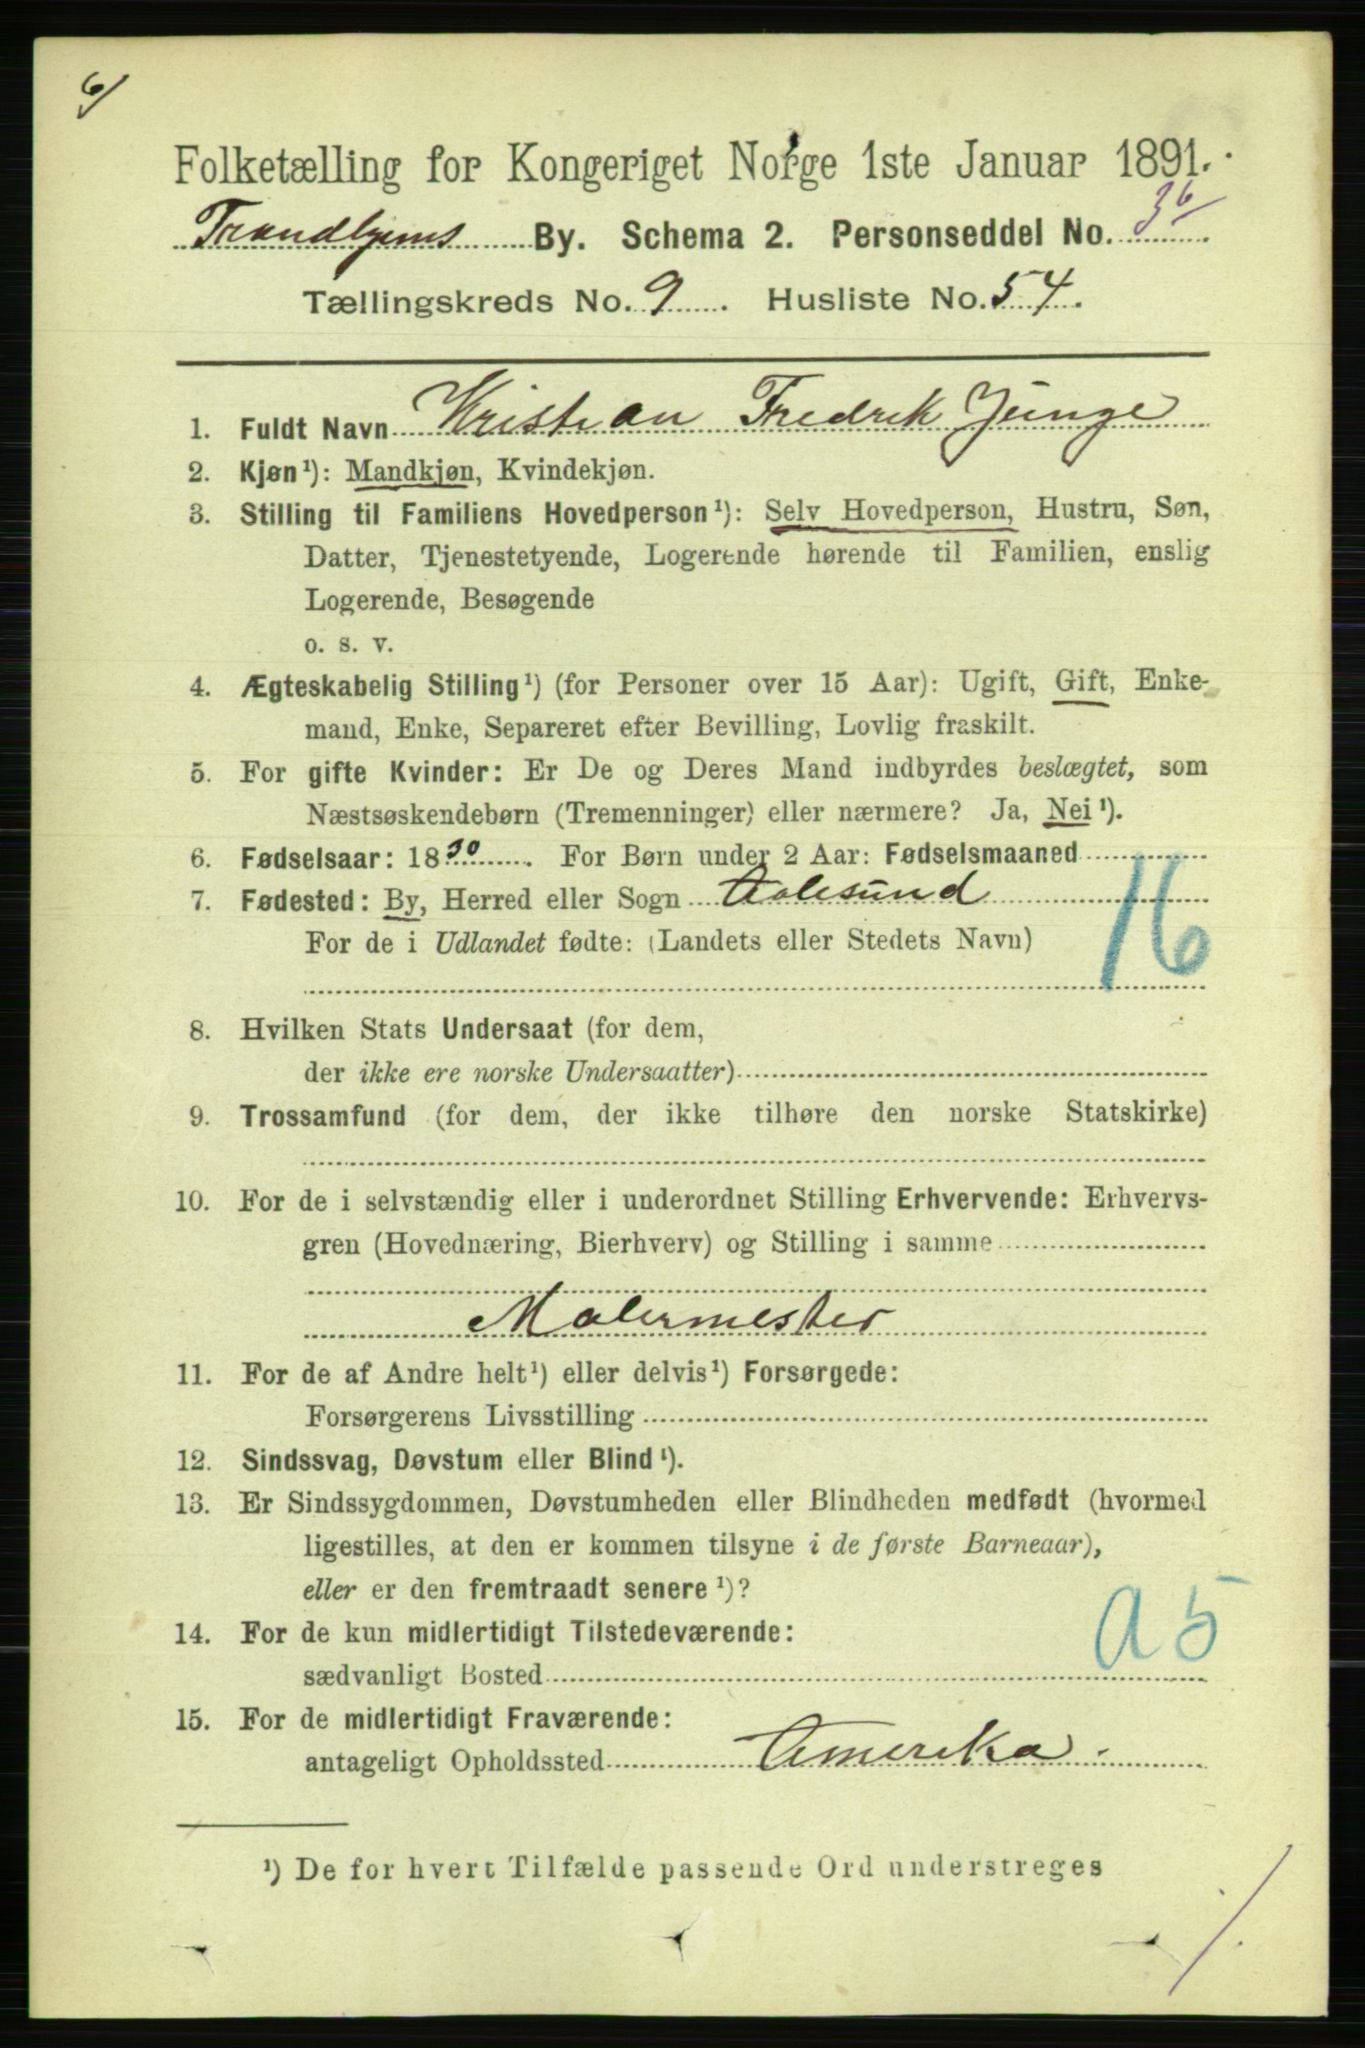 6/
Folketælling for Kongeriget Norge 1ste Januar 1891.
Trondhjems By. Schema 2. Personseddel No. 36
Tællingskreds No. 9. Husliste No. 54.
1. Fuldt Navn Kristian Fredrik Junge
2. Kjøn¹): Mandkjøn, Kvindekjøn.
3. Stilling til Familiens Hovedperson¹): Selv Hovedperson, Hustru, Søn,
Datter, Tjenestetyende, Logerende hørende til Familien, enslig
Logerende, Besøgende
o. s. v.
4. Ægteskabelig Stilling¹) (for Personer over 15 Aar): Ugift, Gift, Enke-
mand, Enke, Separeret efter Bevilling, Lovlig fraskilt.
5. For gifte Kvinder: Er De og Deres Mand indbyrdes beslægtet, som
Næstsøskendebørn (Tremenninger) eller nærmere? Ja, Nei¹).
6. Fødselsaar: 1830. For Børn under 2 Aar: Fødselsmaaned
7. Fødested: By, Herred eller Sogn Aalesund
For de i Udlandet fødte: (Landets eller Stedets Navn)
16
8. Hvilken Stats Undersaat (for dem,
der ikke ere norske Undersaatter)
9. Trossamfund (for dem, der ikke tilhøre den norske Statskirke)
10. For de i selvstændig eller i underordnet Stilling Erhvervende: Erhvervs-
gren (Hovednæring, Bierhverv) og Stilling i samme
Malermester
11. For de af Andre helt¹) eller delvis¹) Forsørgede:
Forsørgerens Livsstilling
12. Sindssvag, Døvstum eller Blind¹).
13. Er Sindssygdommen, Døvstumheden eller Blindheden medfødt (hvormed
ligestilles, at den er kommen tilsyne i de første Barneaar),
eller er den fremtraadt senere¹)?
14. For de kun midlertidigt Tilstedeværende:
sædvanligt Bosted
a 5
15. For de midlertidigt Fraværende:
antageligt Opholdssted Amerika.
¹) De for hvert Tilfælde passende Ord understreges